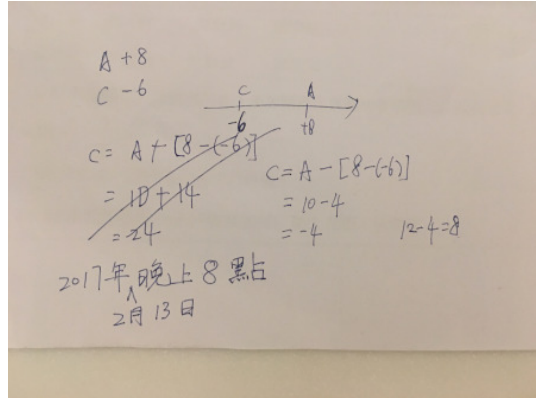 A +8
C -6
C A
-6 +8
C = A + [8-(-6)]
= 10 + 14
= 24
C = A - [8-(-6)]
= 10 - 4
= -4
12-4=8
2017年晚上8點
2月13日